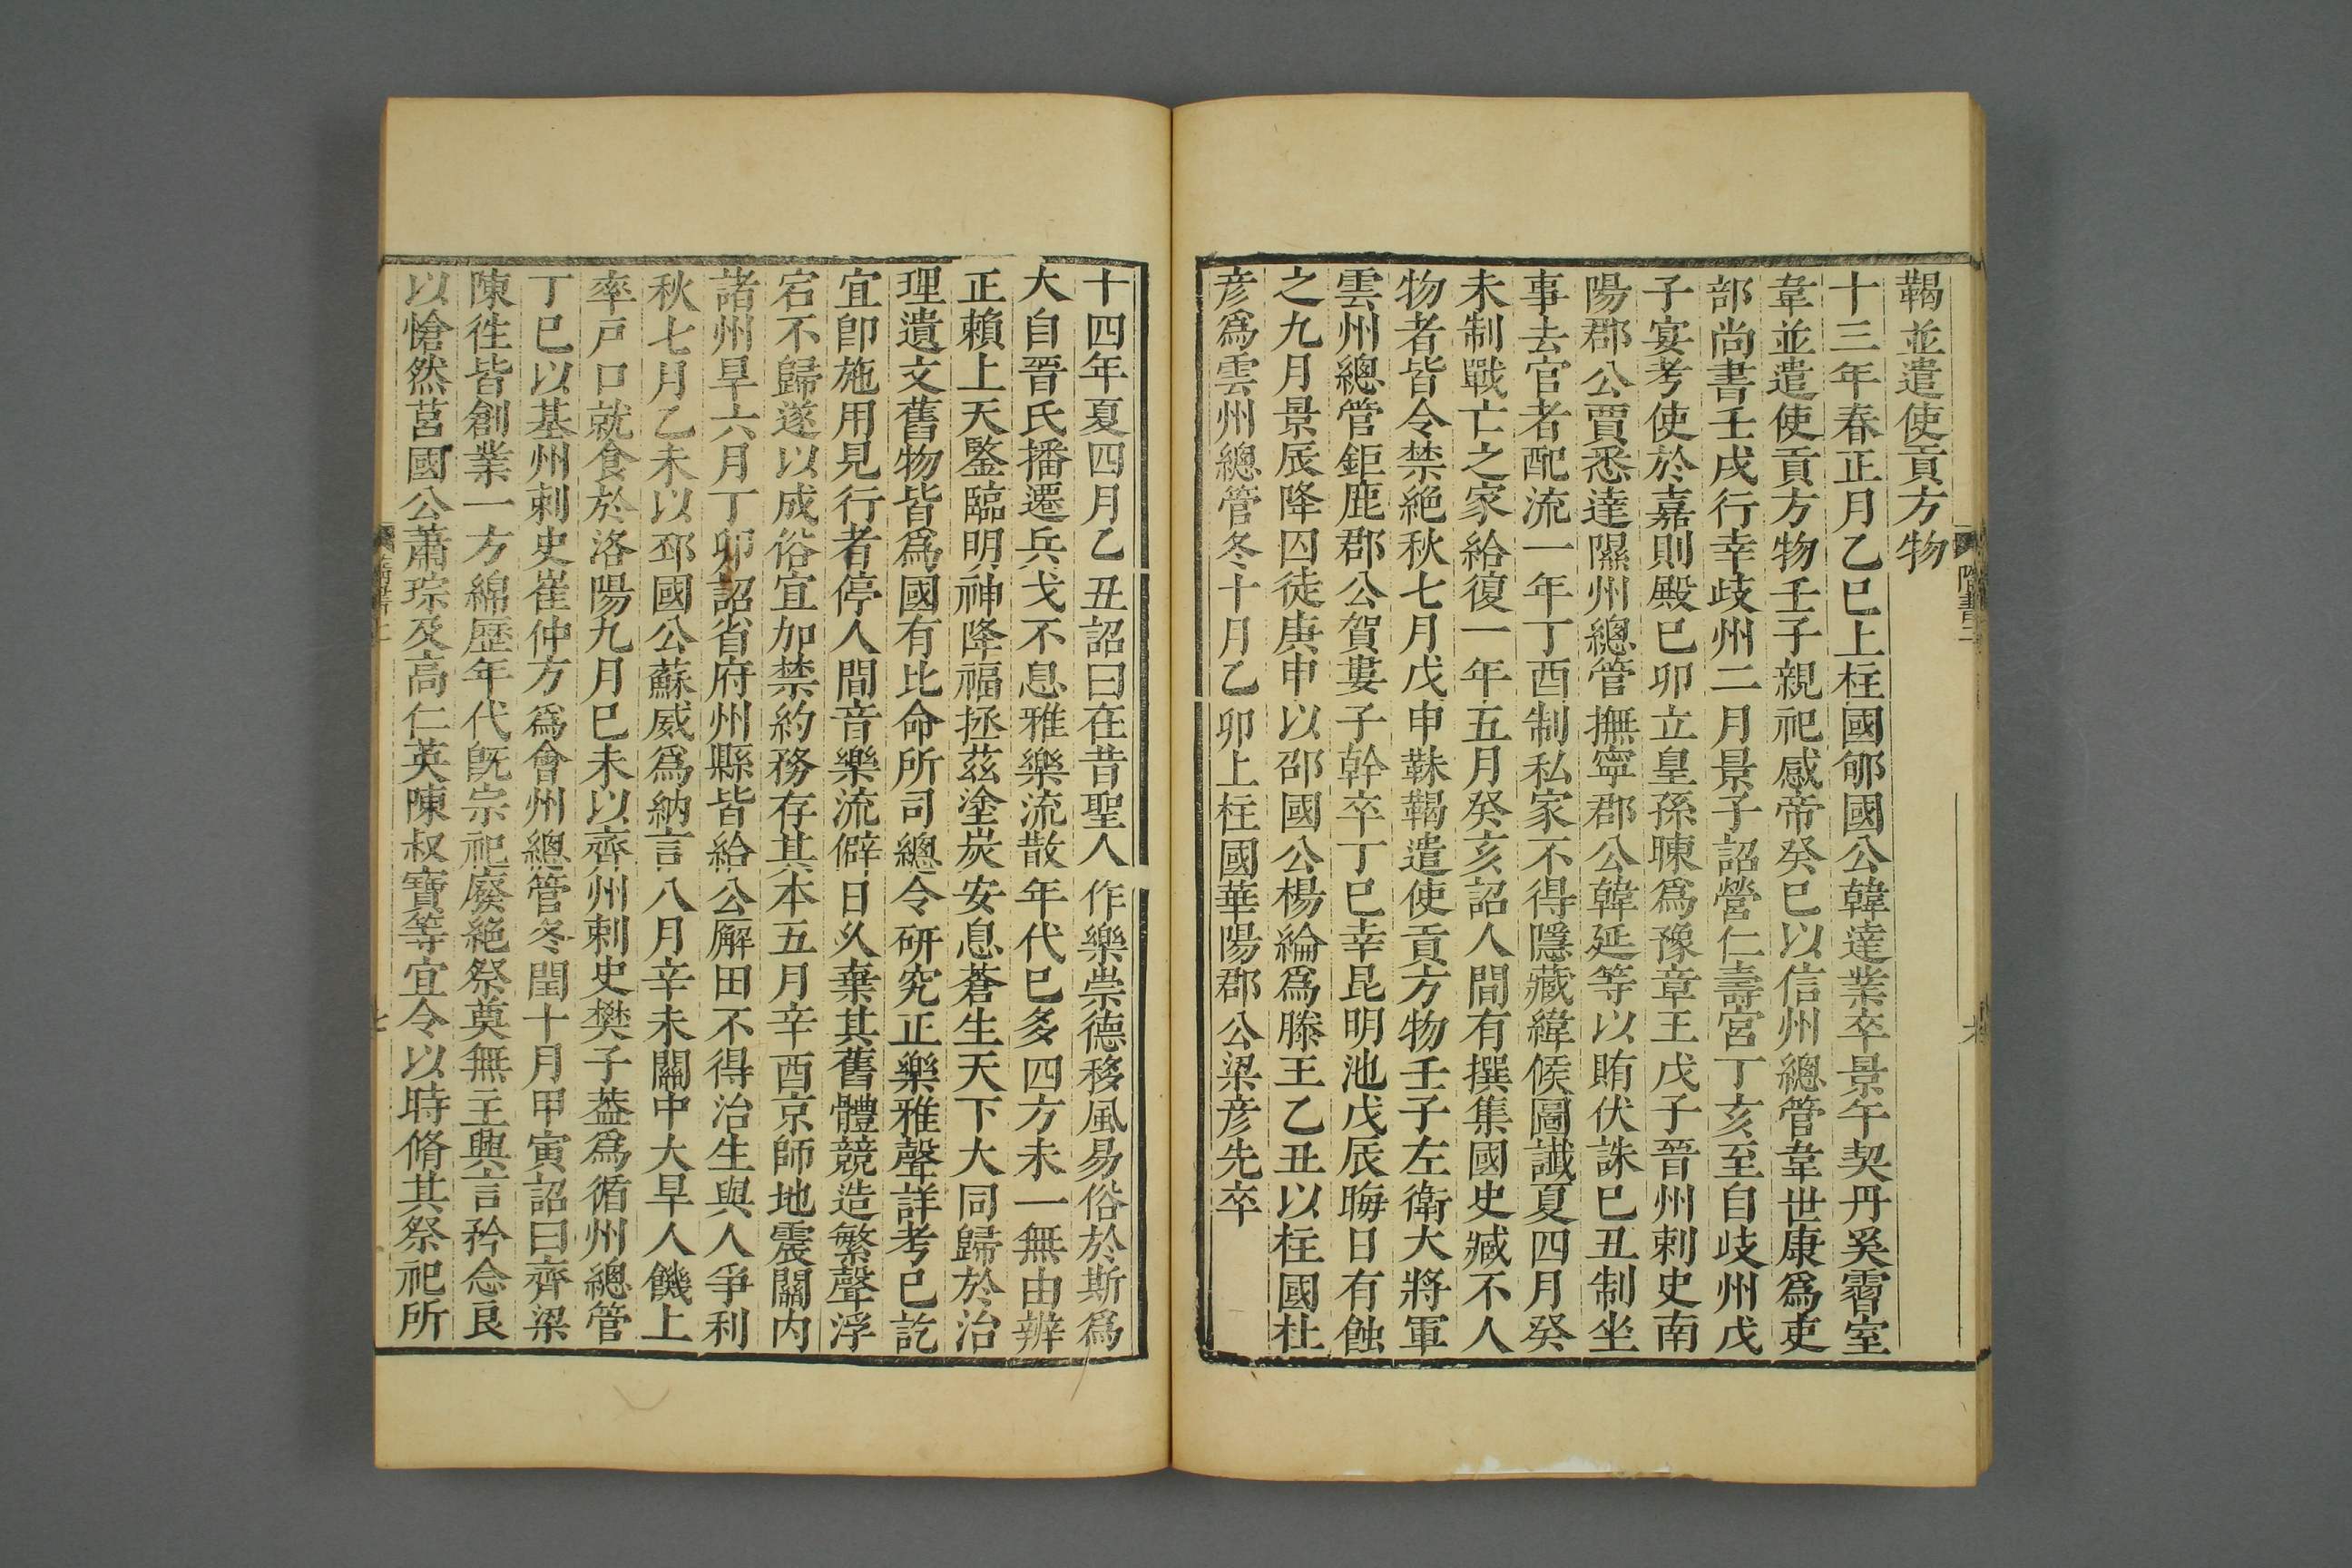 鞨並遣使貢方物
十三年春正月乙巳上柱國郇國公韓達業卒景午契丹奚霫室
韋並遣使貢方物壬子親祀感帝癸巳以信州總管韋世康爲吏
部尚書壬戌行幸歧州二月景子詔營仁壽宮丁亥至自歧州戊
子宴考使於嘉則殿巳卯立皇孫暕爲豫章王戊子晉州刺史南
陽郡公賈悉達隰州總管撫寧郡公韓延等以賄伏誅巳丑制坐
事去官者配流一年丁酉制私家不得隱藏緯候圖讖夏四月癸
未制戰亡之家給復一年五月癸亥詔人間有撰集國史臧不人
物者皆令禁絶秋七月戊申靺鞨遣使貢方物壬子左衛大將軍
雲州總管鉅鹿郡公賀婁子幹卒丁巳幸昆明池戊辰晦日有蝕
之九月景辰降囚徒庚申以邵國公楊綸爲滕王乙丑以柱國杜
彦爲雲州總管冬十月乙卯上柱國華陽郡公梁彦先卒
隋書二
十四年夏四月乙丑詔曰在昔聖人作樂崇德移風易俗於斯爲
大自晉氏播遷兵戈不息雅樂流散年代巳多四方未一無由辨
正賴上天鑒臨明神降福拯茲塗炭安息蒼生天下大同歸於治
理遺文舊物皆爲國有比命所司總令研究正樂雅聲詳考巳訖
宜卽施用見行者停人間音樂流僻日久棄其舊體競造繁聲浮
宕不歸遂以成俗宜加禁約務存其本五月辛酉京師地震關内
諸州旱六月丁卯詔省府州縣皆給公廨田不得治生與人爭利
秋七月乙未以邳國公蘇威爲納言八月辛未關中大旱人饑上
率戸口就食於洛陽九月巳未以齊州刺史樊子蓋爲循州總管
丁巳以基州刺史崔仲方爲會州總管冬閏十月甲寅詔曰齊梁
陳往皆創業一方綿歷年代旣宗祀廢絶祭奠無主興言矜念良
以愴然莒國公蕭琮及高仁英陳叔寶等宜令以時脩其祭祀所